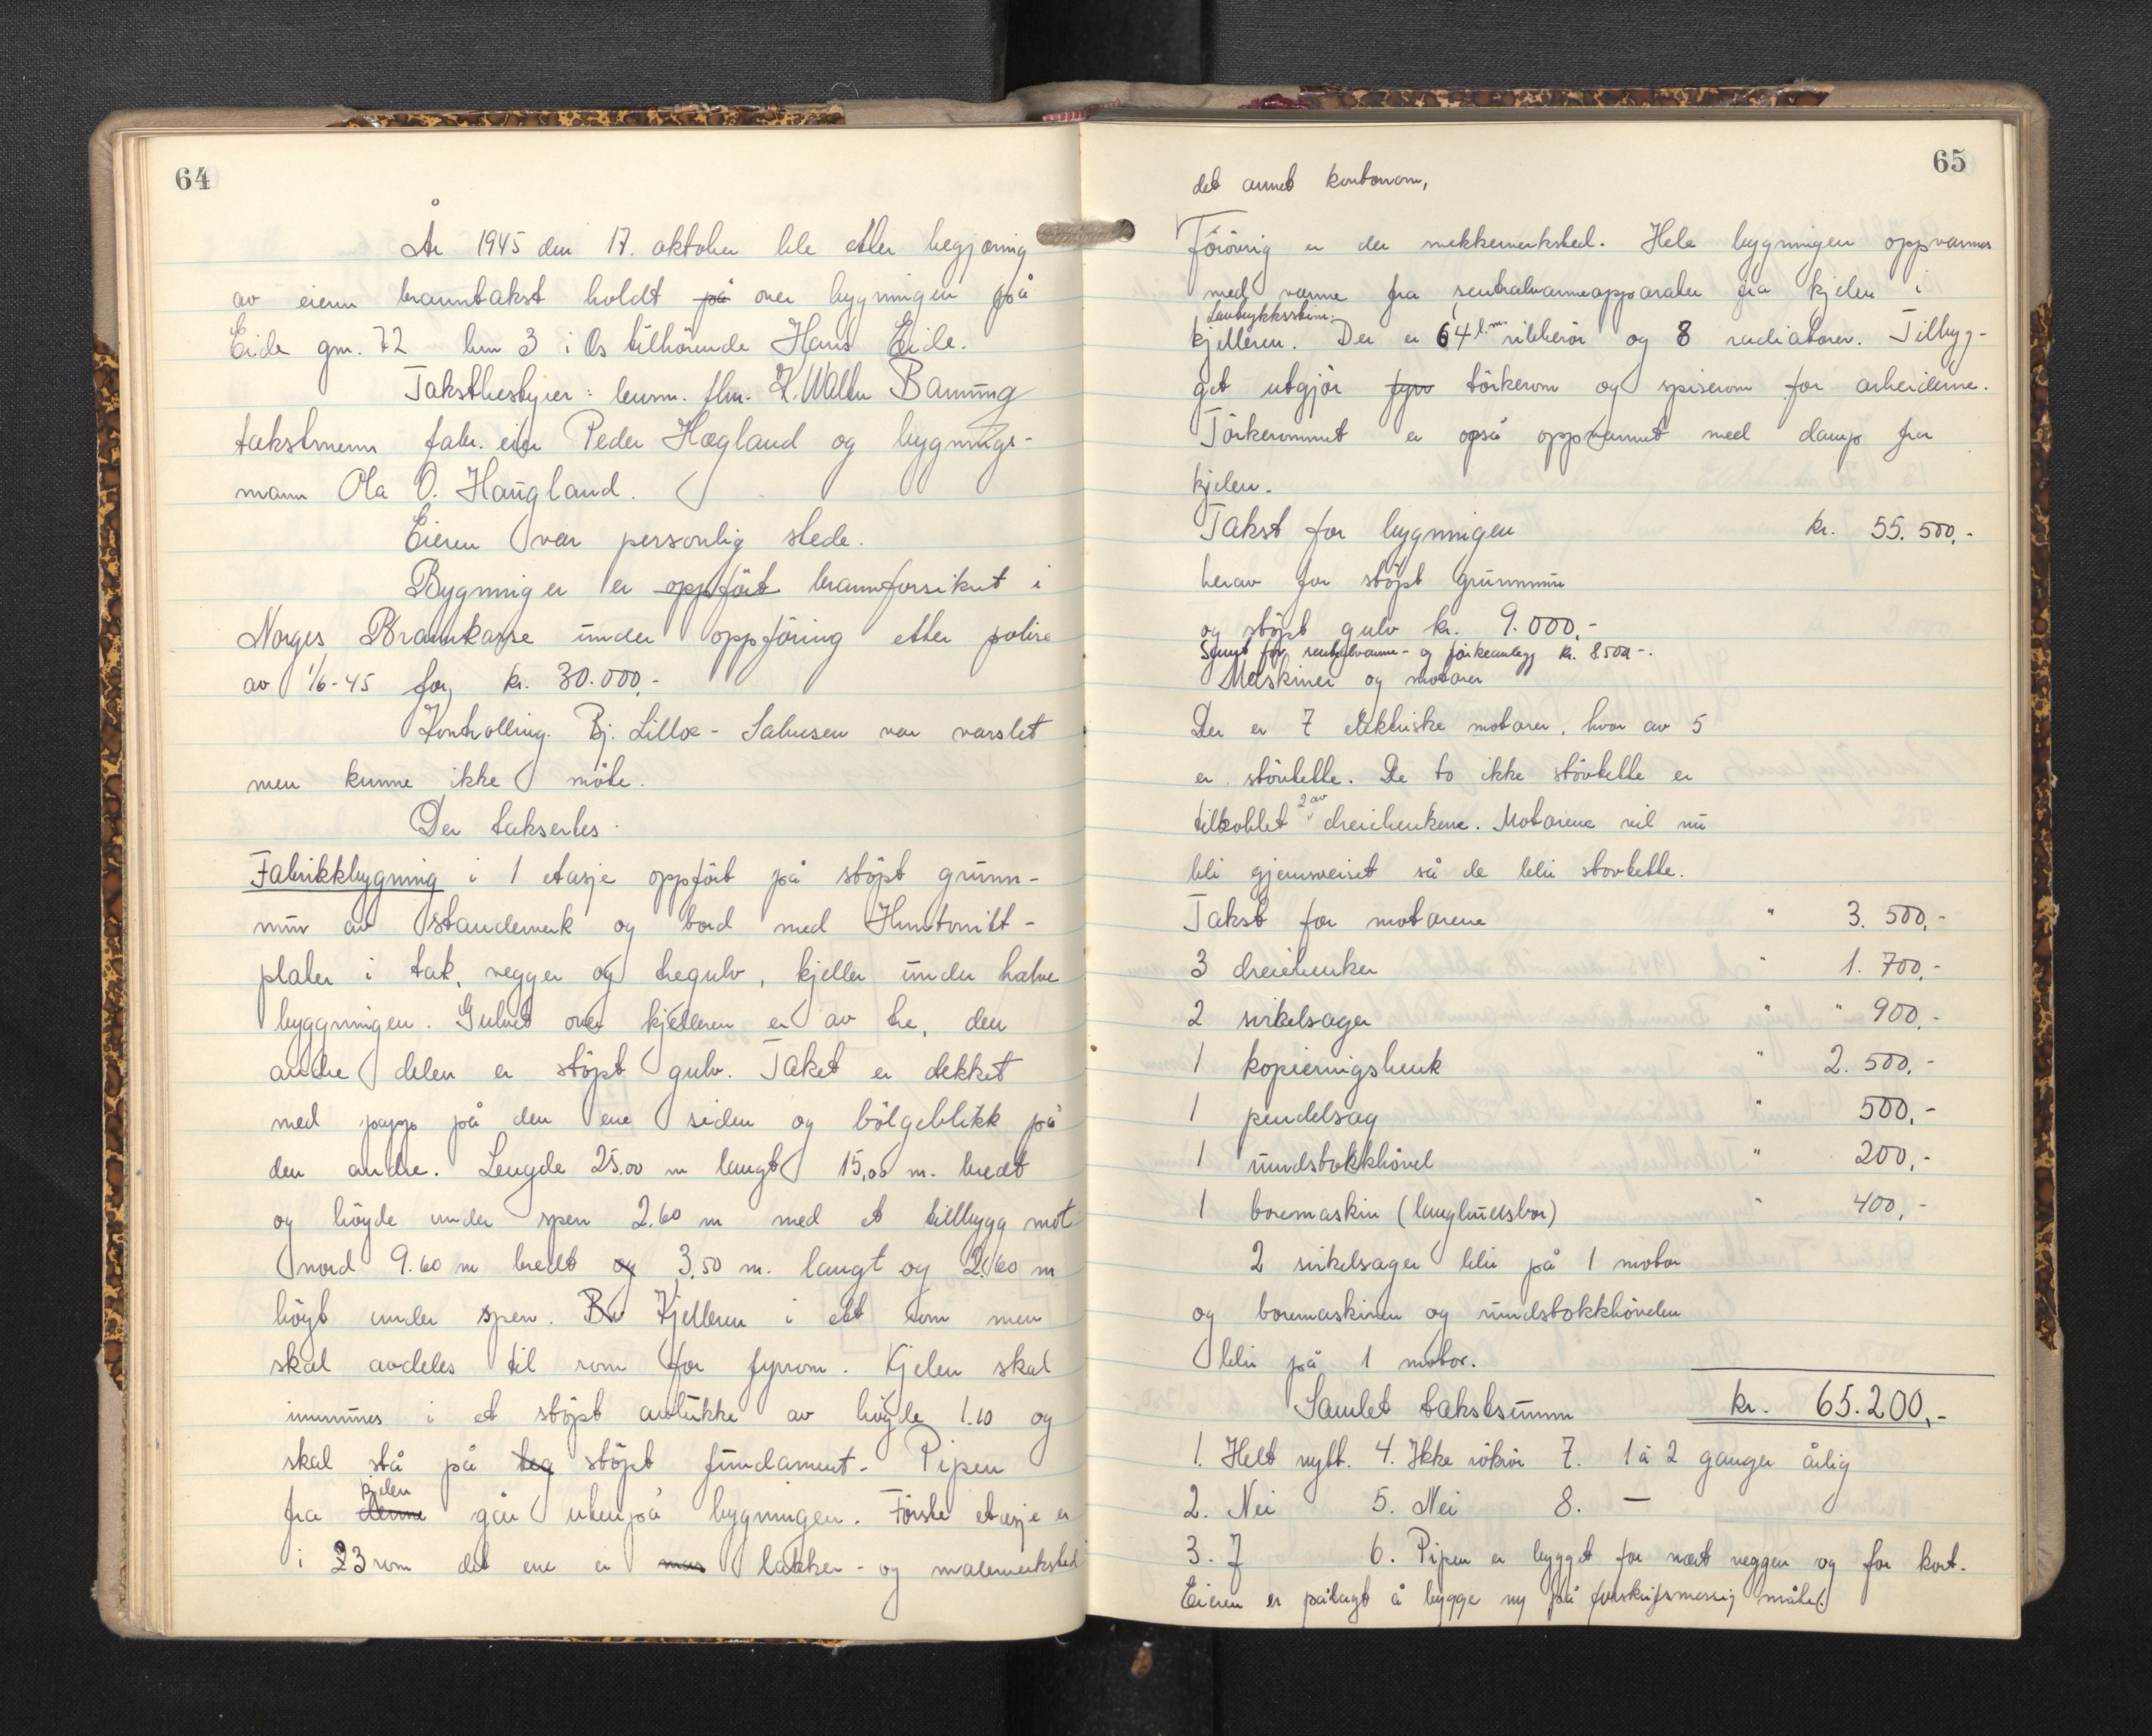 64
År 1945 den 17. oktober ble etter begjæring
av eieren branntakst holdt på over bygningen på
Eide gnr. 72 bnr 3 i Os tilhörende Hans Eide.
Takstbestyrer: lensm. flm. K. Walter Banning
takstmenn fabr. eier Peder Hægland og bygnings-
mann Ola O. Haugland.
Eieren var personlig stede.
Bygningen er oppfört brannforsikret i
Norges Brannkasse under oppföring etter polise
av 1/6-45 for kr. 30.000,-
Kontrolling. Bj. Lilloe-Salvesen var varslet
men kunne ikke möte.
Der taksertes:
Fabrikkbygning i 1 etasje oppfört på stöpt grunn-
mur av standerverk og bord med Huntonitt-
plater i tak, vegger og tregulv, kjeller under halve
byggningen. Gulvet over kjelleren er av tre, den
andre delen er stöpt gulv. Taket er dekket
med papp på den ene siden og bölgeblikk på
den andre. Lengde 25.00 m langt 15,00 m. bredt
og höyde under sperr 2.60 m med et tillbygg mot
nord 9.60 m bredt og 3,50 m. langt og 2.60 m
höyt under sperr. Kjelleren i ett rom men
skal avdeles til rom for fyrrom. Kjelen skal
innmures i et stöpt avlukke av höyde 1.10 og
skal stå på teg stöpt fundament. Pipen
kjelen
fra denne går utenpå bygningen. Förste etasje er
i 3 rom det ene er lakker- og malerverksted
65
det annet kontorrom,
Föröverig er der snekkerverksted. Hele bygningen oppvarmes
med varme fra sentralvarmeapparater fra kjelen i
Lavtrykksstim.
kjelleren. Der er 64 l.m. ribberör og 8 radiatorer. Tilbyg-
get utgjör fyr törkerom og spiserom for arbeiderne.
Törkerommet er også oppvarmet med damp fra
kjelen.
Takst for bygningen kr. 55.500,-
herav for stöpt grunnmur
og stöpt gulv kr. 9.000,-
Samt for sentralvarme- og törkeanlegg kr. 8500,-.
Maskiner og motorer
Der er 7 elektriske motorer, hvor av 5
er stövtette. De to ikke stövtette er
2 av
tilkoblet dreiebenkene. Motorene vil nu
bli gjennomreiset så de blir stovtette.
Takst for motorene " 3.500,-
3 dreiebenker " 1.700,-
2 sirkelsager " " 900,-
1 kopieringsbenk " 2.500,-
1 pendelsag " 500,-
1 rundstokkhövel " 200,-
1 boremaskin (langhullsbor) " 400,-
2 sirkelsager blir på 1 motor
og boremaskinen og rundstokkhövelen
blir på 1 motor.
Samlet takstsumm kr. 65.200,-
1. Helt nytt. 4. Ikke rökrör 7. 1 à 2 ganger årlig
2. Nei 5. Nei 8. —
3. 7 6. Pipen er bygget for nært veggen og for kort.
Eieren er pålagt å bygge ny på forskriftsmessig måte.